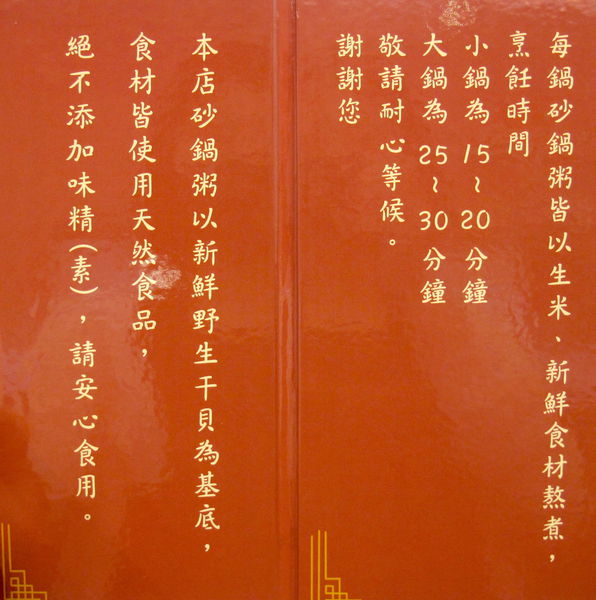 每鍋砂鍋粥皆以生米、新鮮食材熬煮，
烹飪時間
小鍋為 15～20 分鐘
大鍋為 25～30 分鐘
敬請耐心等候。
謝謝您
本店砂鍋粥以新鮮野生干貝為基底，
食材皆使用天然食品，
絕不添加味精(素)，請安心食用。